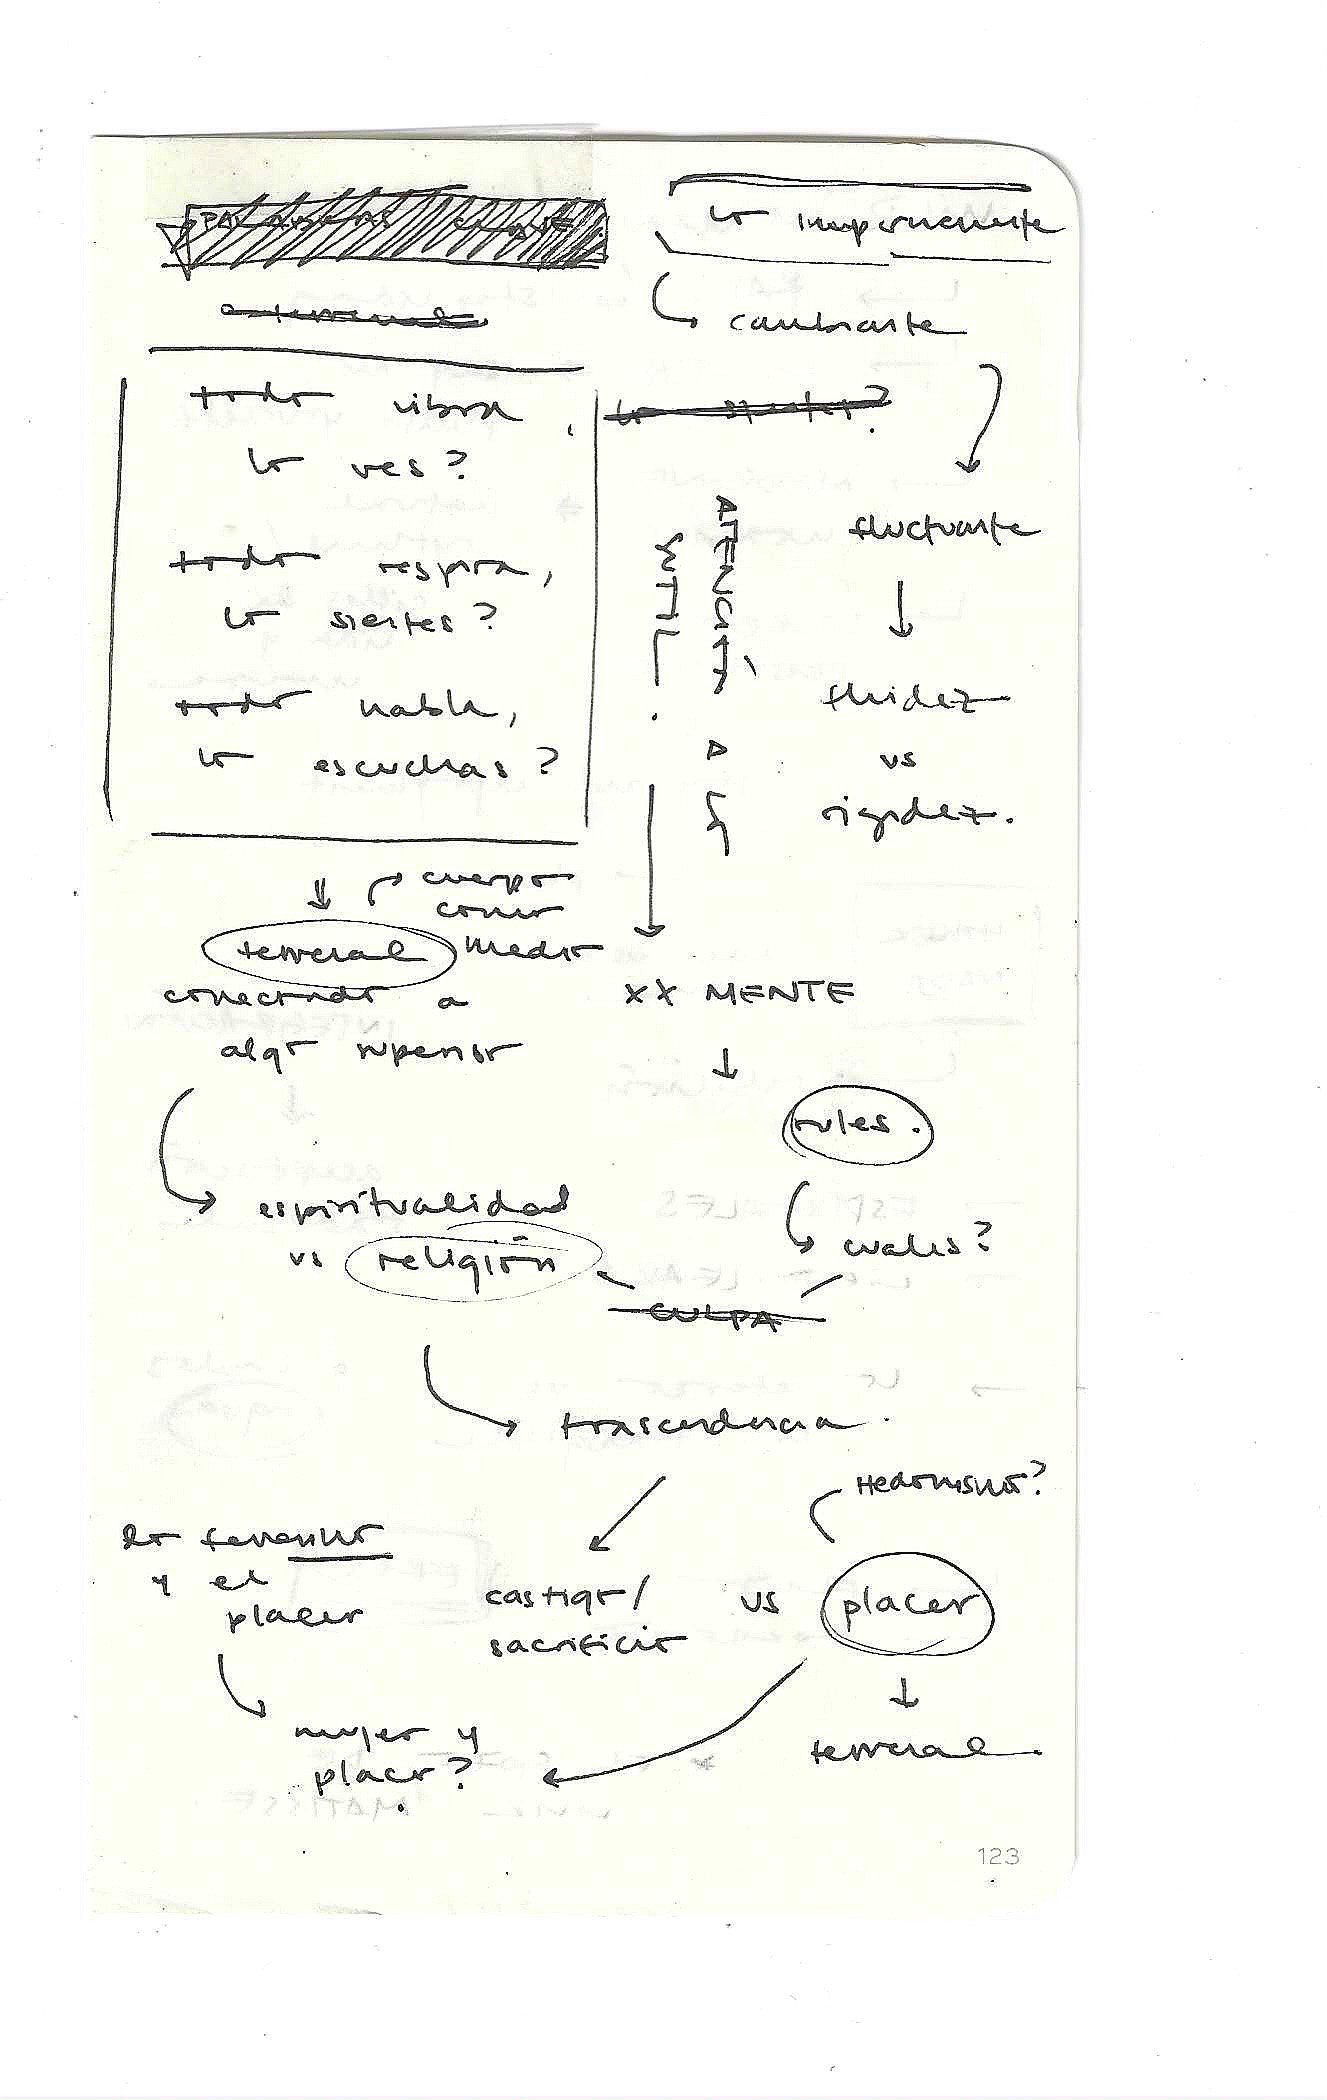 PALABRAS CLAVE
lo impermanente
cambiante
todo vibra,
lo ves?
todo respira,
lo sientes?
todo habla,
lo escuchas?
ATENCIÓN A LO
SUTIL.
fluctuante
fluidez
vs
rigidez.
cuerpo
como
medio
terrenal
conectado a
algo superior
XX MENTE
rules.
cuales?
espiritualidad
vs religión
CULPA
trascendencia.
Hedonismo?
lo femenino
y el
placer
castigo/
sacrificio
vs placer
mujer y
placer?
terrenal.
123